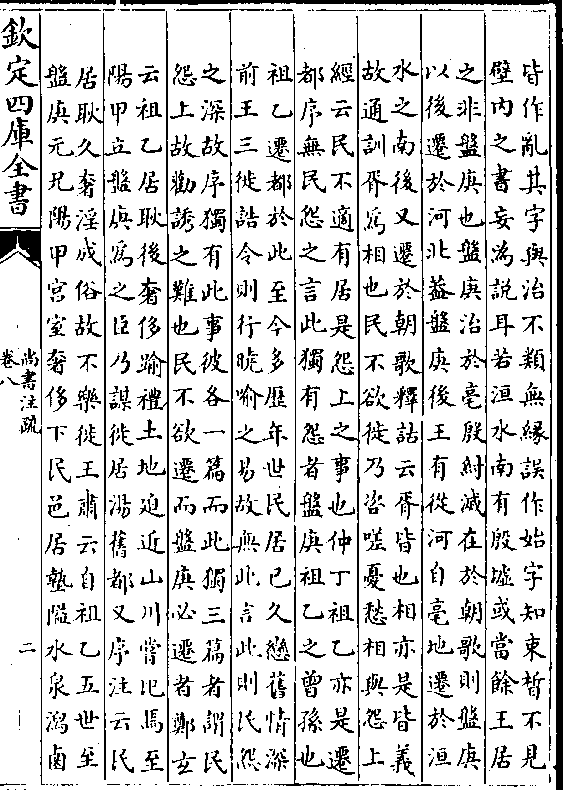 皆作亂其字與治不類無縁誤作始字知束晳不見
壁内之書妄為說耳若洹水南有殷墟或當餘王居
之非盤庚也盤庚治於亳殷紂滅在於朝歌則盤庚
以後遷於河北葢盤庚後王有從河自亳地遷於洹
水之南後又遷於朝歌釋詁云胥皆也相亦是皆義
故通訓胥為相也民不欲徙乃咨嗟憂愁相與怨上
經云民不適有居是怨上之事也仲丁祖乙亦是遷
都序無民怨之言此獨有怨者盤庚祖乙之曾孫也
祖乙遷都於此至今多歴年世民居已久戀舊情深
前王三徙誥令則行曉喻之易故無此言此則民怨
之深故序獨有此事彼各一篇而此獨三篇者謂民
怨上故勸誘之難也民不欲遷而盤庚必遷者鄭玄
云祖乙居耿後奢侈踰禮土地迫近山川嘗圯焉至
陽甲立盤庚為之臣乃謀徙居湯舊都又序注云民
居耿久奢淫成俗故不樂徙王肅云自祖乙五世至
盤庚元兄陽甲宫室奢侈下民邑居墊隘水泉瀉鹵
欽定四庫全書
尚書注疏
卷八
二